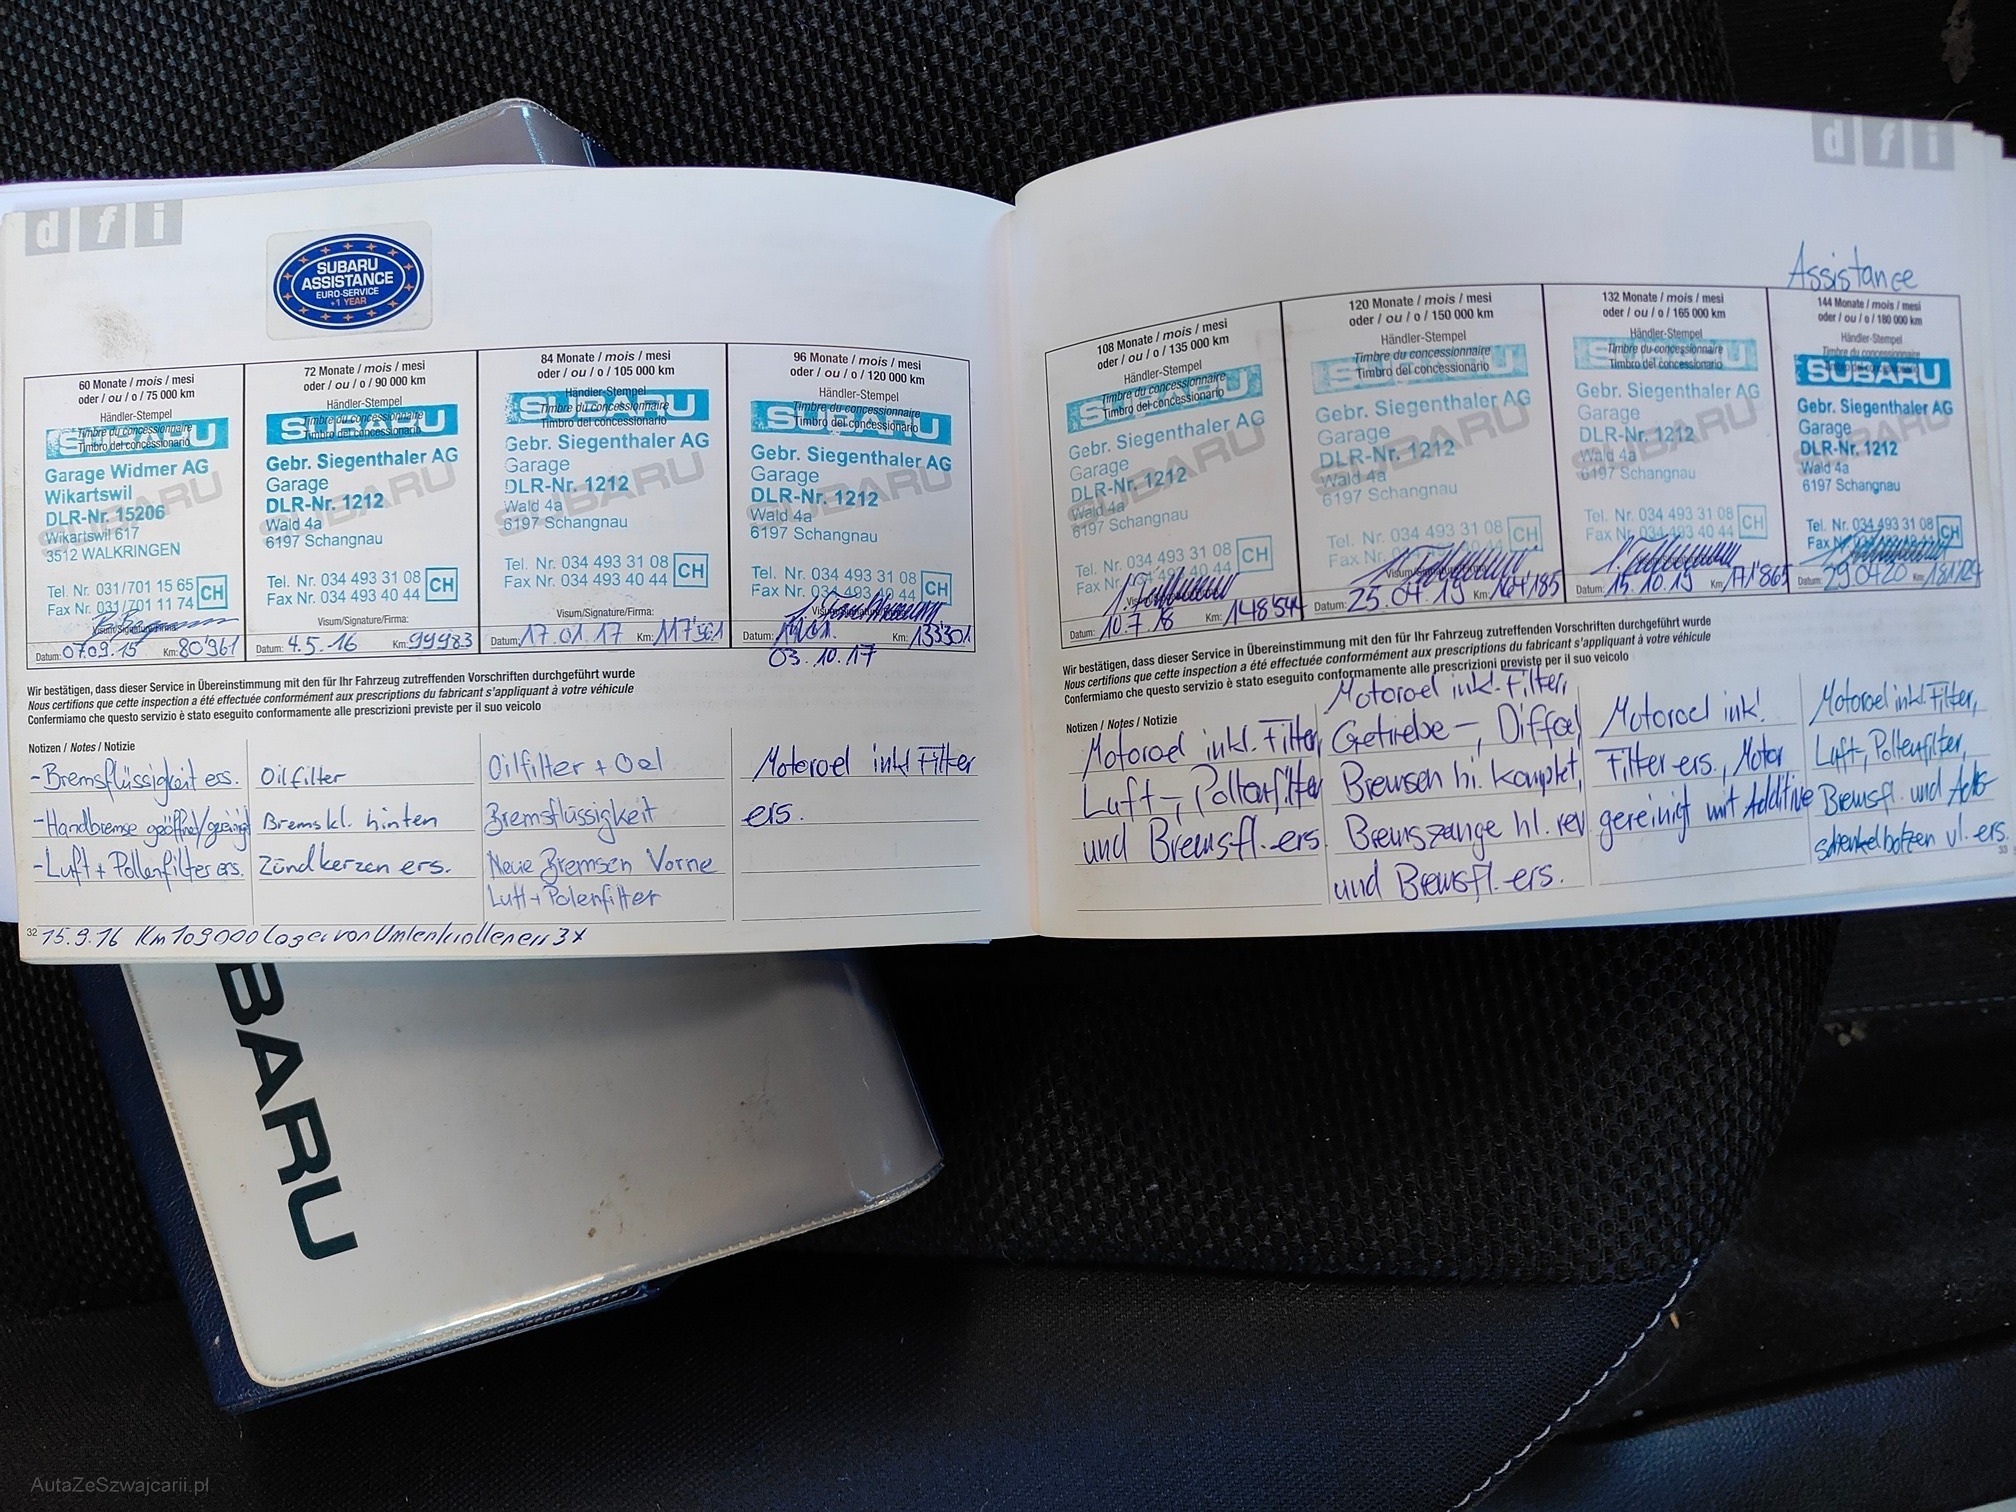 d f i
SUBARU
ASSISTANCE
EURO-SERVICE
+1 YEAR
60 Monate / mois / mesi
oder / ou / o / 75 000 km
Händler-Stempel
Timbre du concessionnaire
Timbro del concessionario
SUBARU
Garage Widmer AG
Wikartswil
DLR-Nr. 15206
Wikartswil 617
3512 WALKRINGEN
Tel. Nr. 031/701 15 65
Fax Nr. 031/701 11 74
CH
Visum/Signature/Firma:
Datum: 07.09.15 Km: 80'961
72 Monate / mois / mesi
oder / ou / o / 90 000 km
Händler-Stempel
Timbre du concessionnaire
Timbro del concessionario
SUBARU
Gebr. Siegenthaler AG
Garage
DLR-Nr. 1212
Wald 4a
6197 Schangnau
Tel. Nr. 034 493 31 08
Fax Nr. 034 493 40 44
CH
Visum/Signature/Firma:
Datum: 4.5.16 Km: 99983
84 Monate / mois / mesi
oder / ou / o / 105 000 km
Händler-Stempel
Timbre du concessionnaire
Timbro del concessionario
SUBARU
Gebr. Siegenthaler AG
Garage
DLR-Nr. 1212
Wald 4a
6197 Schangnau
Tel. Nr. 034 493 31 08
Fax Nr. 034 493 40 44
CH
Visum/Signature/Firma:
Datum: 17.01.17 Km: 117'561
96 Monate / mois / mesi
oder / ou / o / 120 000 km
Händler-Stempel
Timbre du concessionnaire
Timbro del concessionario
SUBARU
Gebr. Siegenthaler AG
Garage
DLR-Nr. 1212
Wald 4a
6197 Schangnau
Tel. Nr. 034 493 31 08
Fax Nr. 034 493 40 44
CH
Visum/Signature/Firma:
Datum: Km: 133'301
03.10.17
Wir bestätigen, dass dieser Service in Übereinstimmung mit den für Ihr Fahrzeug zutreffenden Vorschriften durchgeführt wurde
Nous certifions que cette inspection a été effectuée conformément aux prescriptions du fabricant s'appliquant à votre véhicule
Confermiamo che questo servizio è stato eseguito conformamente alle prescrizioni previste per il suo veicolo
Notizen / Notes / Notizie
-Bremsflüssigkeit ers.
-Handbremse geöffnet/gereinigt
-Luft + Pollenfilter ers.
Oilfilter
Bremskl. hinten
Zündkerzen ers.
Oilfilter + Oel
Bremsflüssigkeit
Neue Bremsen Vorne
Luft + Polenfilter
Motoroel inkl Filter
ers.
32 15.9.16 Km 109000 Lager von Umlenkrollen ers 3x
d f i
Assistance
108 Monate / mois / mesi
oder / ou / o / 135 000 km
Händler-Stempel
Timbre du concessionnaire
Timbro del concessionario
SUBARU
Gebr. Siegenthaler AG
Garage
DLR-Nr. 1212
Wald 4a
6197 Schangnau
Tel. Nr. 034 493 31 08
Fax Nr. 034 493 40 44
CH
Datum: 10.7.18 Km: 148'544
120 Monate / mois / mesi
oder / ou / o / 150 000 km
Händler-Stempel
Timbre du concessionnaire
Timbro del concessionario
SUBARU
Gebr. Siegenthaler AG
Garage
DLR-Nr. 1212
Wald 4a
6197 Schangnau
Tel. Nr. 034 493 31 08
Fax Nr. 034 493 40 44
CH
Datum: 25.04.19 Km: 164'185
132 Monate / mois / mesi
oder / ou / o / 165 000 km
Händler-Stempel
Timbre du concessionnaire
Timbro del concessionario
Gebr. Siegenthaler AG
Garage
DLR-Nr. 1212
Wald 4a
6197 Schangnau
Tel. Nr. 034 493 31 08
Fax Nr. 034 493 40 44
CH
Datum: 15.10.19 Km: 171'865
144 Monate / mois / mesi
oder / ou / o / 180 000 km
Händler-Stempel
SUBARU
Gebr. Siegenthaler AG
Garage
DLR-Nr. 1212
Wald 4a
6197 Schangnau
Tel. Nr. 034 493 31 08
CH
Datum: 29.04.20 Km: 181'124
Wir bestätigen, dass dieser Service in Übereinstimmung mit den für Ihr Fahrzeug zutreffenden Vorschriften durchgeführt wurde
Nous certifions que cette inspection a été effectuée conformément aux prescriptions du fabricant s'appliquant à votre véhicule
Confermiamo che questo servizio è stato eseguito conformamente alle prescrizioni previste per il suo veicolo
Notizen / Notes / Notizie
Motoroel inkl. Filter,
Luft-, Pollenfilter
und Bremsfl. ers.
Motoroel inkl. Filter,
Getriebe-, Diffoel
Bremsen hi. komplet,
Bremszange hl. rev
und Bremsfl. ers.
Motoroel inkl.
Filter ers., Motor
gereinigt mit Additive
Motoroel inkl. Filter,
Luft-, Pollenfilter,
Bremsfl. und Achs-
schenkelbolzen vl. ers.
33
BARU
AutaZeSzwajcarii.pl